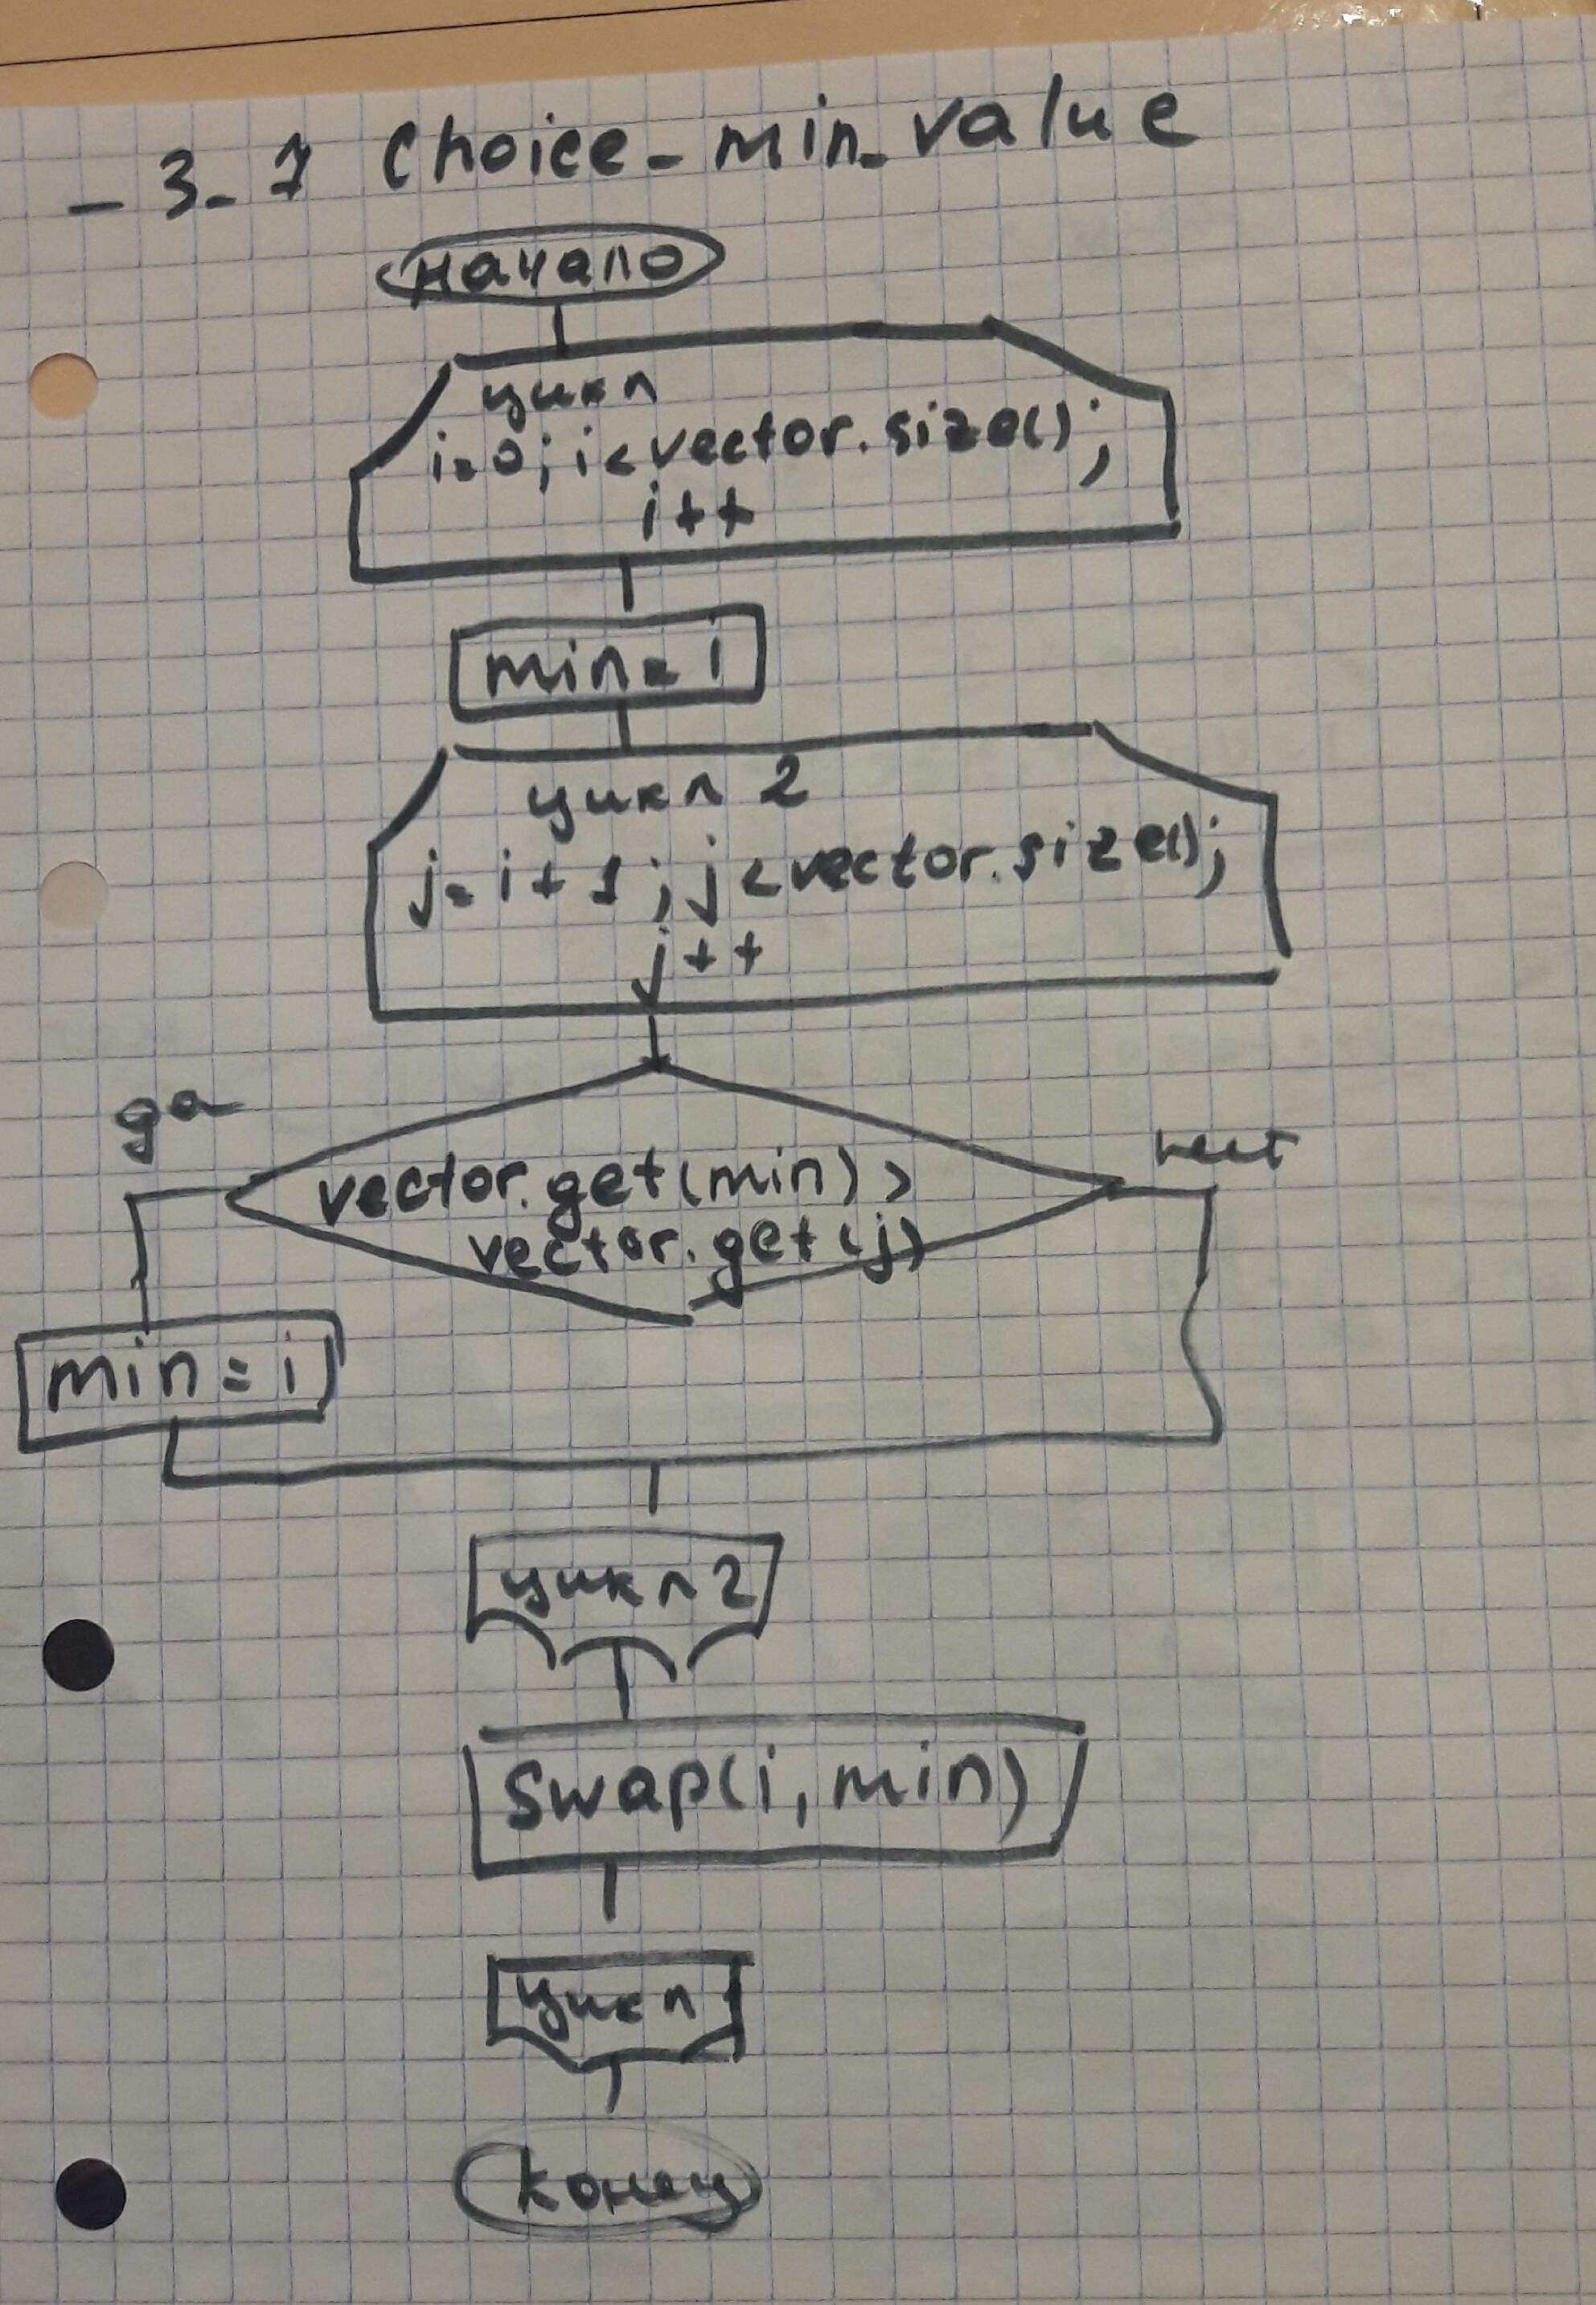 - 3. 7 Choice_min_value
начало
цикл
i=0; i<vector.size();
i++
min=i
цикл 2
j=i+1; j<vector.size();
j++
да
нет
vector.get(min)>
vector.get(j)
min=i
цикл 2
Swap(i, min)
цикл
конец